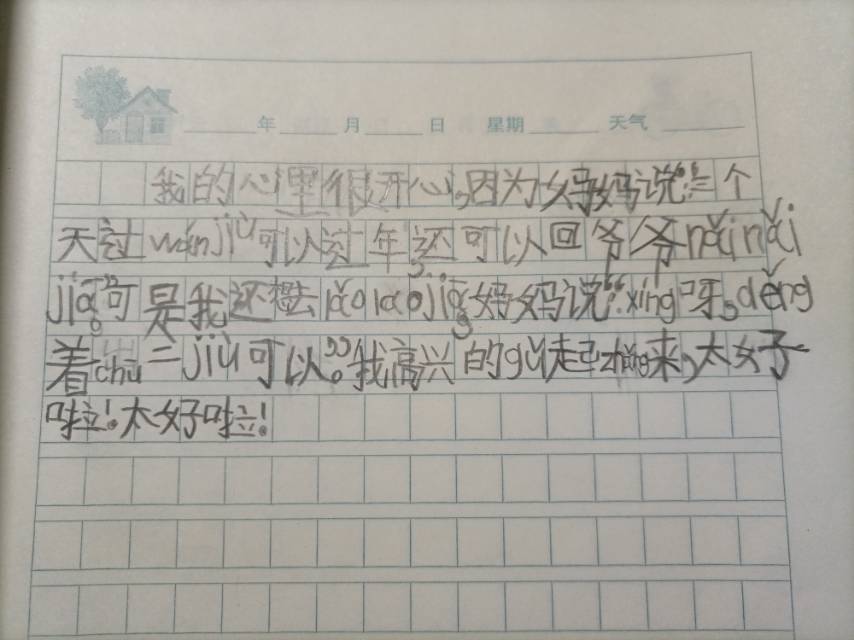 年 月 日 星期 天气
我的心里很开心,因为妈妈说:“三个
天过wán jiù可以过年,还可以回爷爷nǎi nǎi
jiā。可是我还想去lǎo lao jiā,妈妈说:“xíng呀,děng
着chū二jiù可以。”我高兴的gǔ起zhǎng来,太好
啦!太好啦!